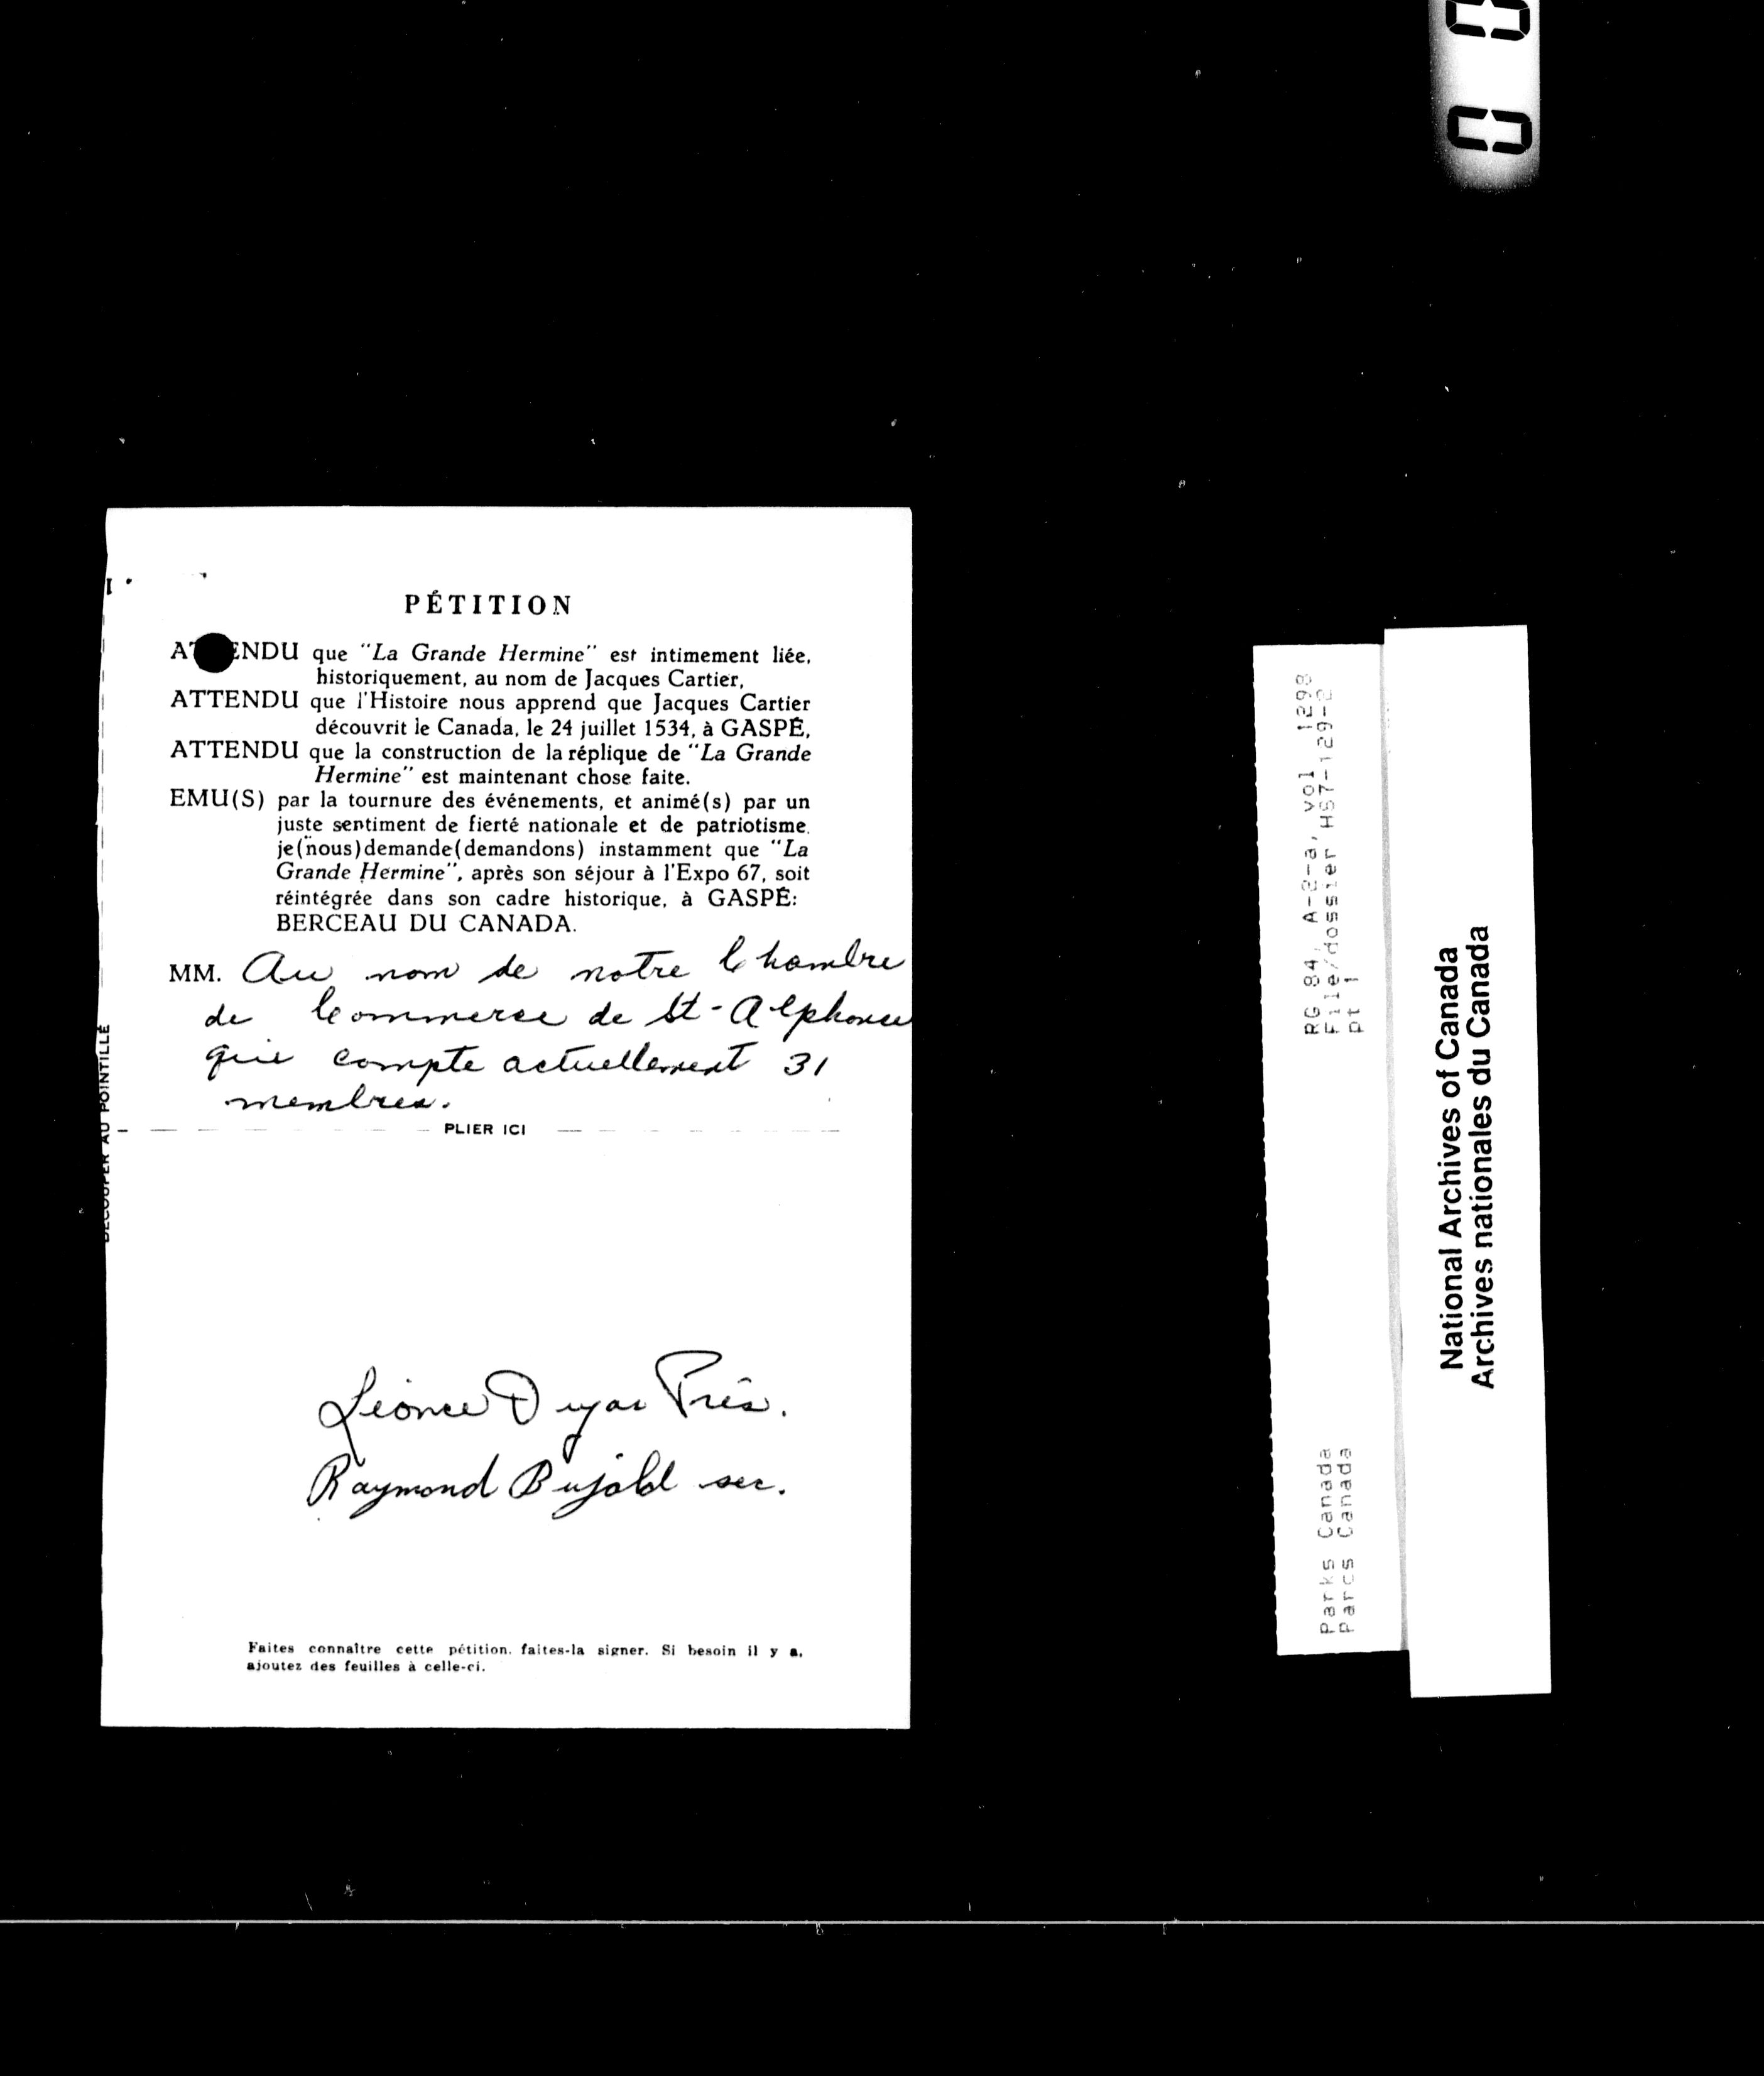 PÉTITION
ATTENDU que "La Grande Hermine" est intimement liée,
historiquement, au nom de Jacques Cartier,
ATTENDU que l'Histoire nous apprend que Jacques Cartier
découvrit le Canada, le 24 juillet 1534, à GASPÉ,
ATTENDU que la construction de la réplique de "La Grande
Hermine" est maintenant chose faite.
EMU(S) par la tournure des événements, et animé(s) par un
juste sentiment de fierté nationale et de patriotisme,
je(nous)demande(demandons) instamment que "La
Grande Hermine", après son séjour à l'Expo 67, soit
réintégrée dans son cadre historique, à GASPÉ:
BERCEAU DU CANADA.
MM. Au nom de notre Chambre
de Commerce de St-Alphonse
qui compte actuellement 31
membres.
PLIER ICI
DÉCOUPER AU POINTILLÉ
Léonce Dugas Prés.
Raymond Bujold sec.
Faites connaître cette pétition, faites-la signer. Si besoin il y a,
ajoutez des feuilles à celle-ci.
RG 84, A-2-a, vol 1298
File/dossier HS7-129-2
pt 1
Parks Canada
Parcs Canada
National Archives of Canada
Archives nationales du Canada